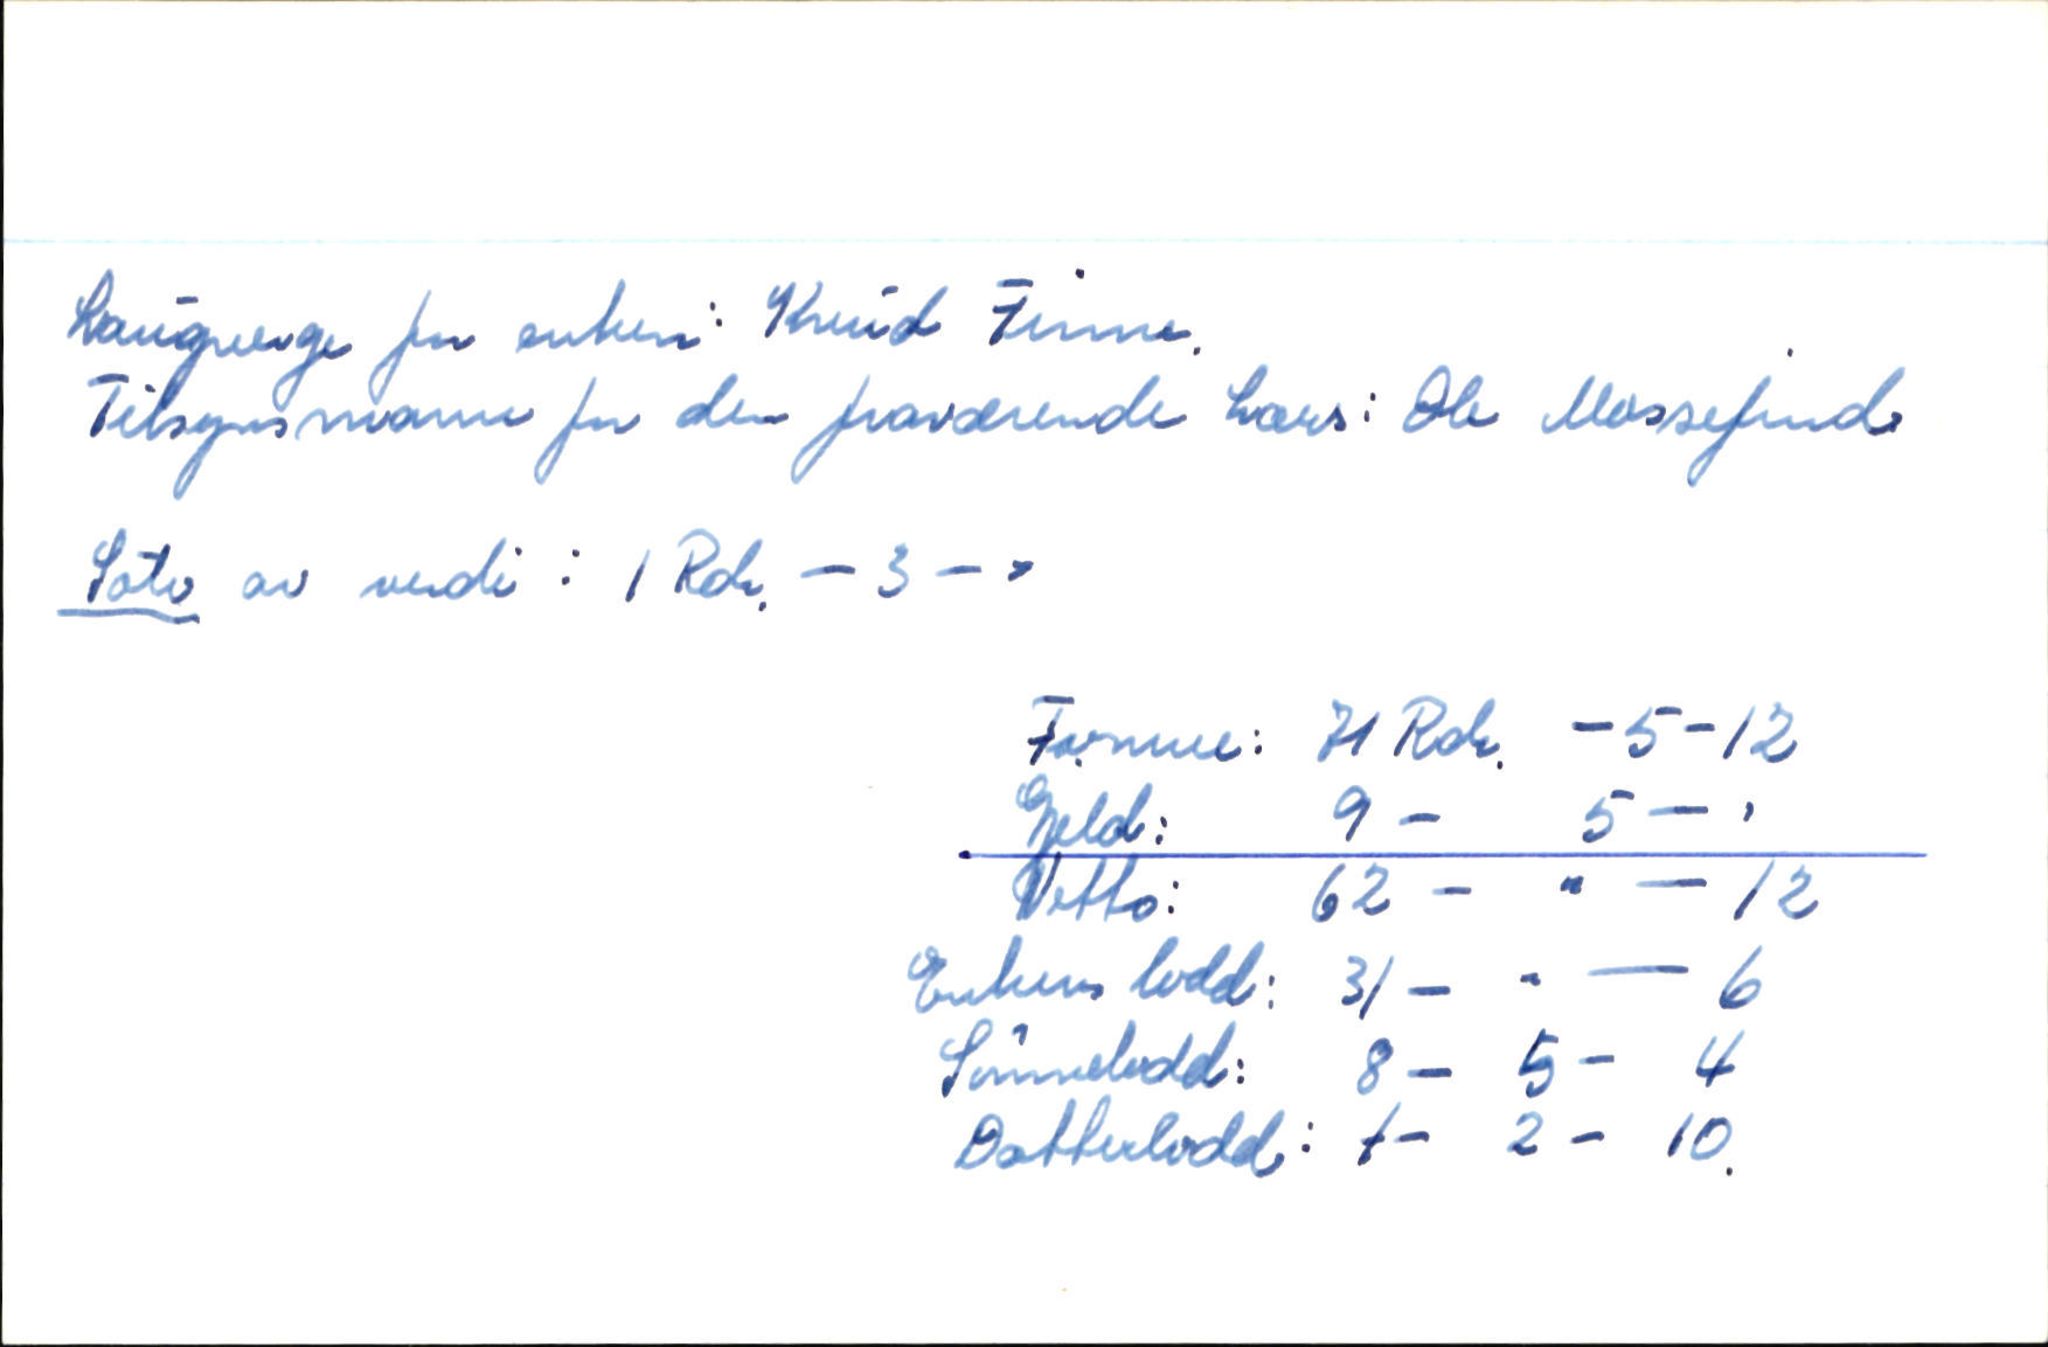 Laugverge for enken: Knud Finne.
Tilsynsmann for den fraværende Lars: Ole Mossefind
Sølv av verdi: 1 Rdr. - 3 - "
Formue: 71 Rdr. - 5 - 12
Gjeld: 9 - 5 - "
Netto: 62 - " - 12
Enkens lodd: 31 - " - 6
Sønnelodd: 8 - 5 - 4
Datterlodd: - 2 - 10.